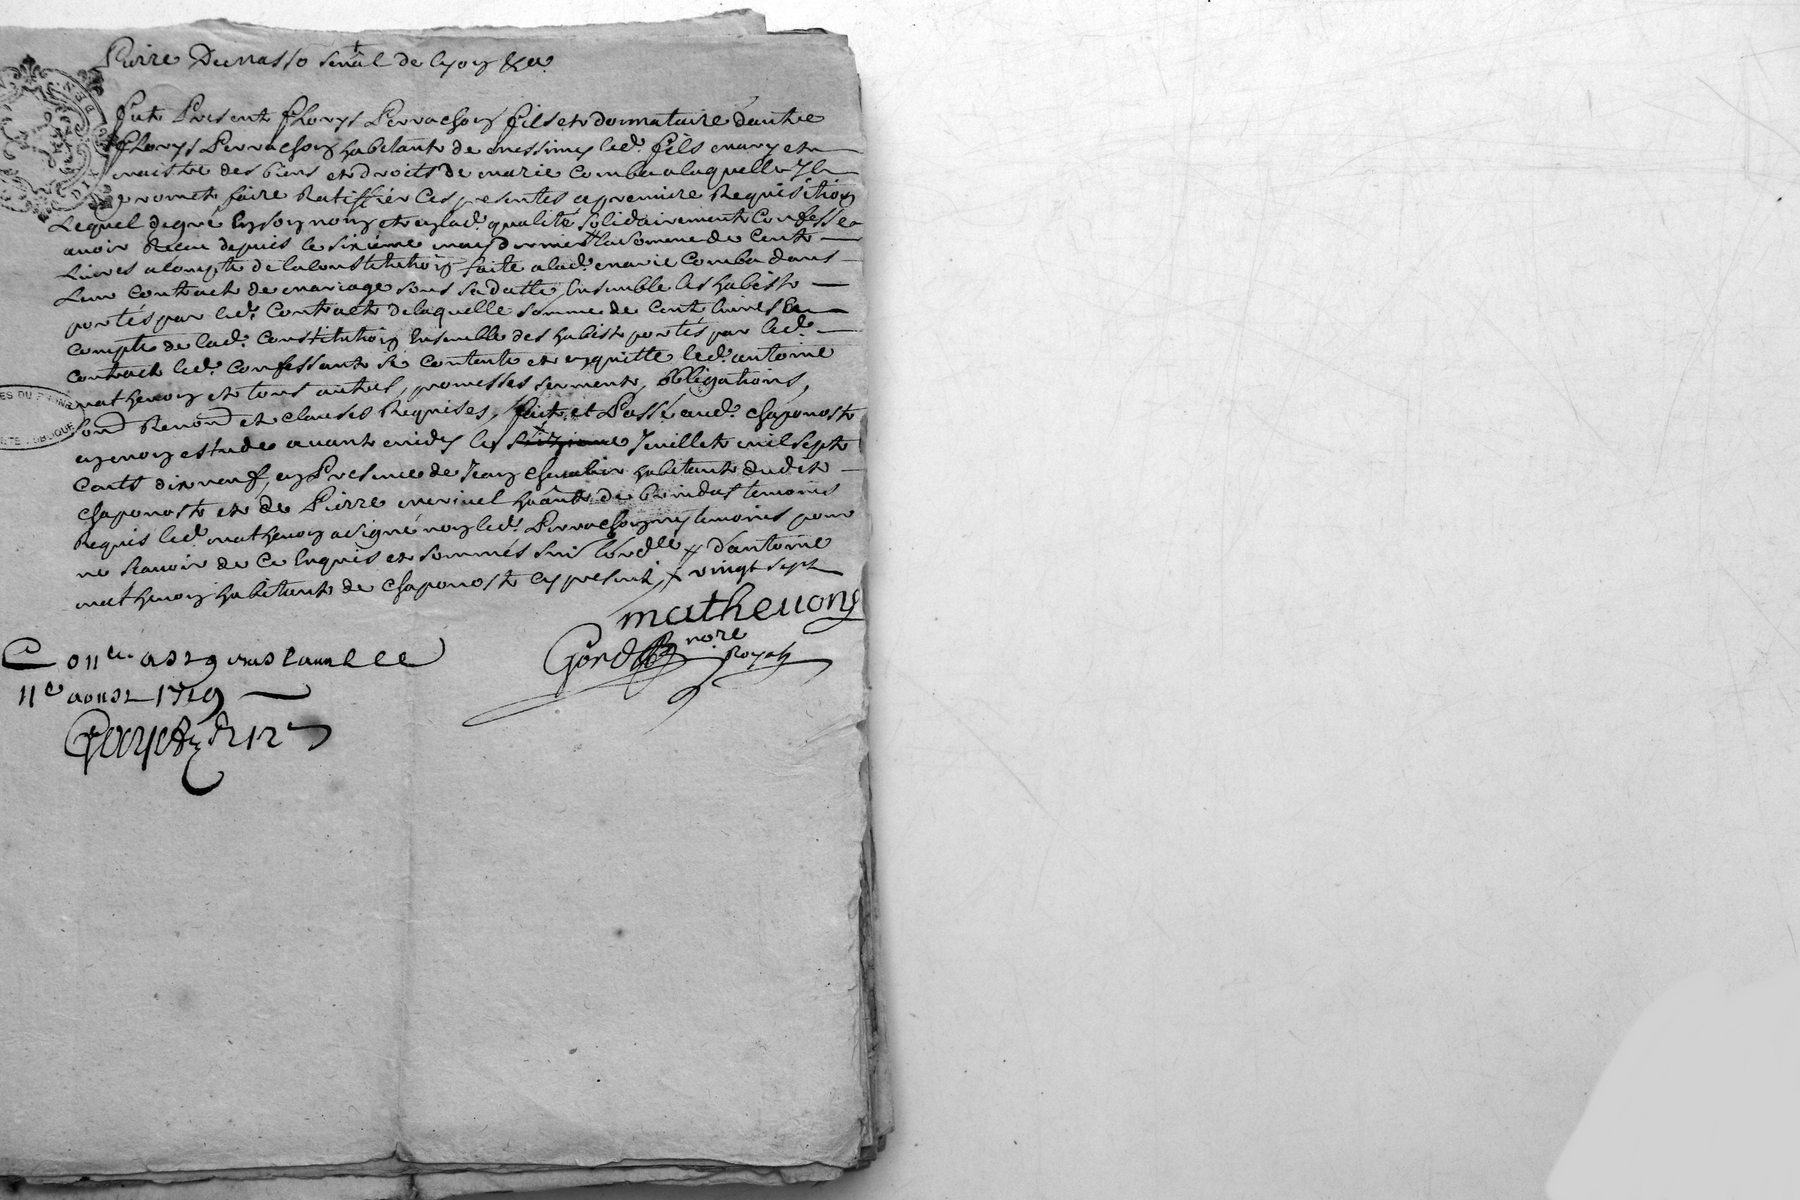 Pierre Dumasso senâl de Lyon &a.
fut Present fleurys Perrachon fils et donnataire dautre
fleurys Perrachon habitant de messimy led. fils mary et
maistre des biens et droits de marie Comba a laquelle Il
promet faire Ratiffier Ces presentes a premiere Requisition
Lequel degré En son nom et en lad. qualité solidairement Confesse
avoir Receu depuis le sixieme mars dernier la somme de Cent
Livres a Compte de la Constitution faite a lad. marie Comba dans
Leur Contract de mariage sous sa datte, Ensemble les habists
portés par led. Contract de laquelle somme de Cent livres En
Compte de lad. Constitution Ensemble des habists portés par led.
Contract led. Confessant se Contente et en quitte led. antoine
mathevon et tous autres, promesses serments, obligations,
Renond et clauses Requises, fait et Passé aud. Chaponost
en mon estude avant midy le Juillet mil sept
Cents dix neuf, en Presence de Jean Chevalier habitant dudit
Chaponost et de Pierre merinel hâant de brindas temoins
Requis led. mathevon a signé non led. Perrachon ny temoins pour
ne scavoir de Ce Enquis et sommés sui lord.lle # d'antoine
mathevon habitant de Chaponost cy present, + vingt sept
mathevon
Gord nore
Royal
Con.lle a
11e aoust 1719
ES DU